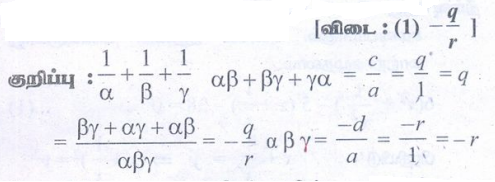 [விடை : (1) −q/r ]
குறிப்பு : 1/α + 1/β + 1/γ αβ + βγ + γα = c/a = q/1 = q
= (βγ + αγ + αβ)/αβγ = −q/r αβγ = −d/a = −r/1 = −r